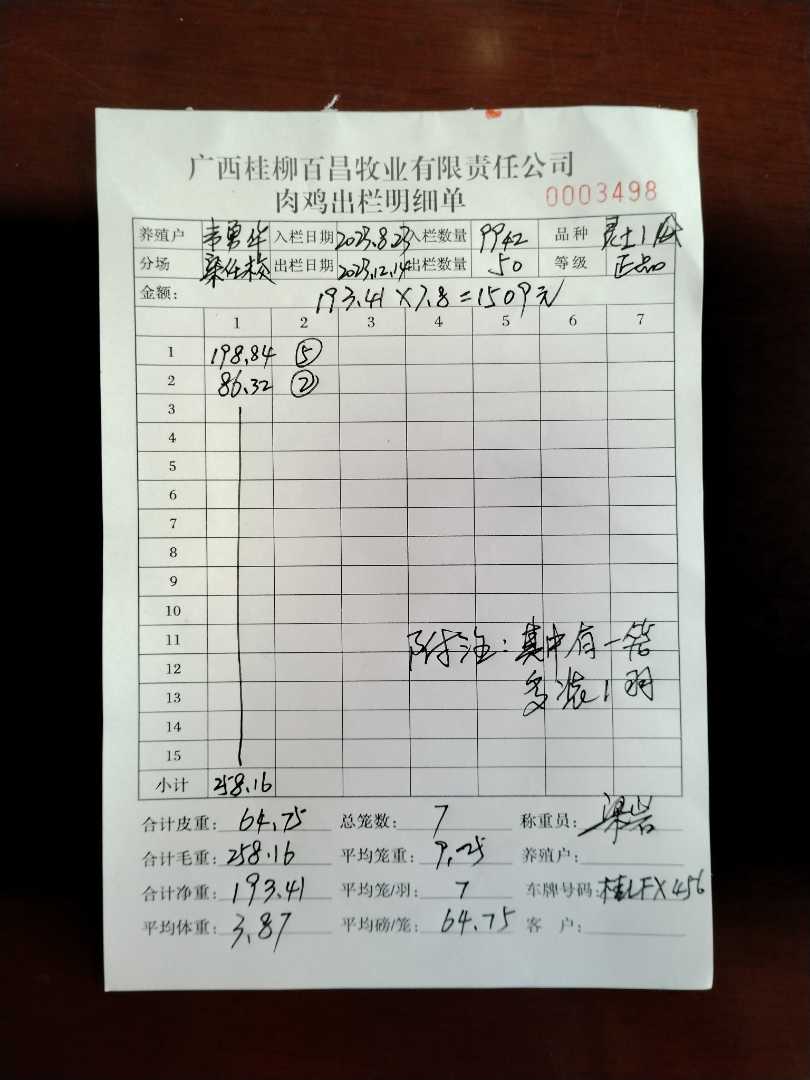 广西桂柳百昌牧业有限责任公司
肉鸡出栏明细单 0003498
养殖户 韦勇华 入栏日期 2023.8.23 入栏数量 9942 品种
分场 出栏日期 2023.12.14 出栏数量 50 等级 正品
金额: 193.41×7.8=1509元
1 2 3 4 5 6 7
1 198.84 ⑤
2 86.32 ②
3
4
5
6
7
8
9
10
11 附注:其中有一笼
12
13 多装1羽
14
15
小计 258.16
合计皮重: 64.75 总笼数: 7 称重员: 梁岩
合计毛重: 258.16 平均笼重: 9.25 养殖户:
合计净重: 193.41 平均笼/羽: 7 车牌号码: 桂LFX456
平均体重: 3.87 平均磅/笼: 64.75 客 户: